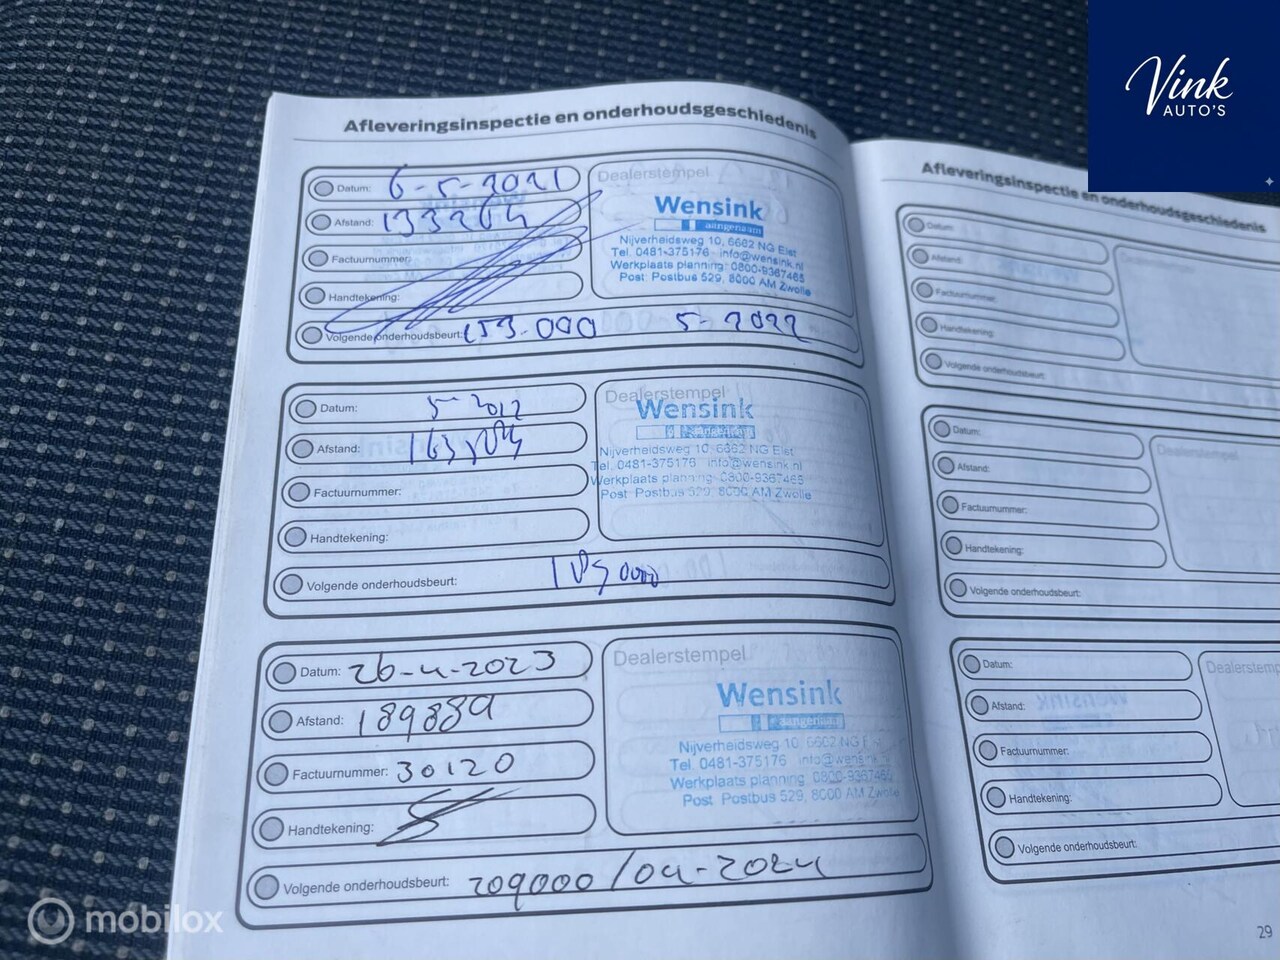 Vink
AUTO'S
Afleveringsinspectie en onderhoudsgeschiedenis
Datum: 6-5-2021
Afstand: 133264
Factuurnummer:
Handtekening:
Volgende onderhoudsbeurt: 153.000 5-2022
Dealerstempel
Wensink
aangenaam
Nijverheidsweg 10, 6662 NG Elst
Tel. 0481-375176 info@wensink.nl
Werkplaats planning: 0800-9367465
Post: Postbus 529, 8000 AM Zwolle
Datum:
Afstand:
Factuurnummer:
Handtekening:
Volgende onderhoudsbeurt:
Dealerstempel
Wensink
Nijverheidsweg 10, 6662 NG Elst
Tel. 0481-375176 info@wensink.nl
Werkplaats planning: 0800-9367465
Post: Postbus 529, 8000 AM Zwolle
Datum: 26-4-2023
Afstand: 189889
Factuurnummer: 30120
Handtekening:
Volgende onderhoudsbeurt: 209000/04-2024
Dealerstempel
Wensink
aangenaam
Nijverheidsweg 10, 6662 NG
Tel. 0481-375176 info@wensink.nl
Werkplaats planning: 0800-9367465
Post: Postbus 529, 8000 AM Zwolle
Afleveringsinspectie en onderhoudsgeschiedenis
Datum:
Afstand:
Factuurnummer:
Handtekening:
Volgende onderhoudsbeurt:
Datum:
Afstand:
Factuurnummer:
Handtekening:
Volgende onderhoudsbeurt:
Dealerstempel
Datum:
Afstand:
Factuurnummer:
Handtekening:
Volgende onderhoudsbeurt:
Dealerstemp
29
mobilox